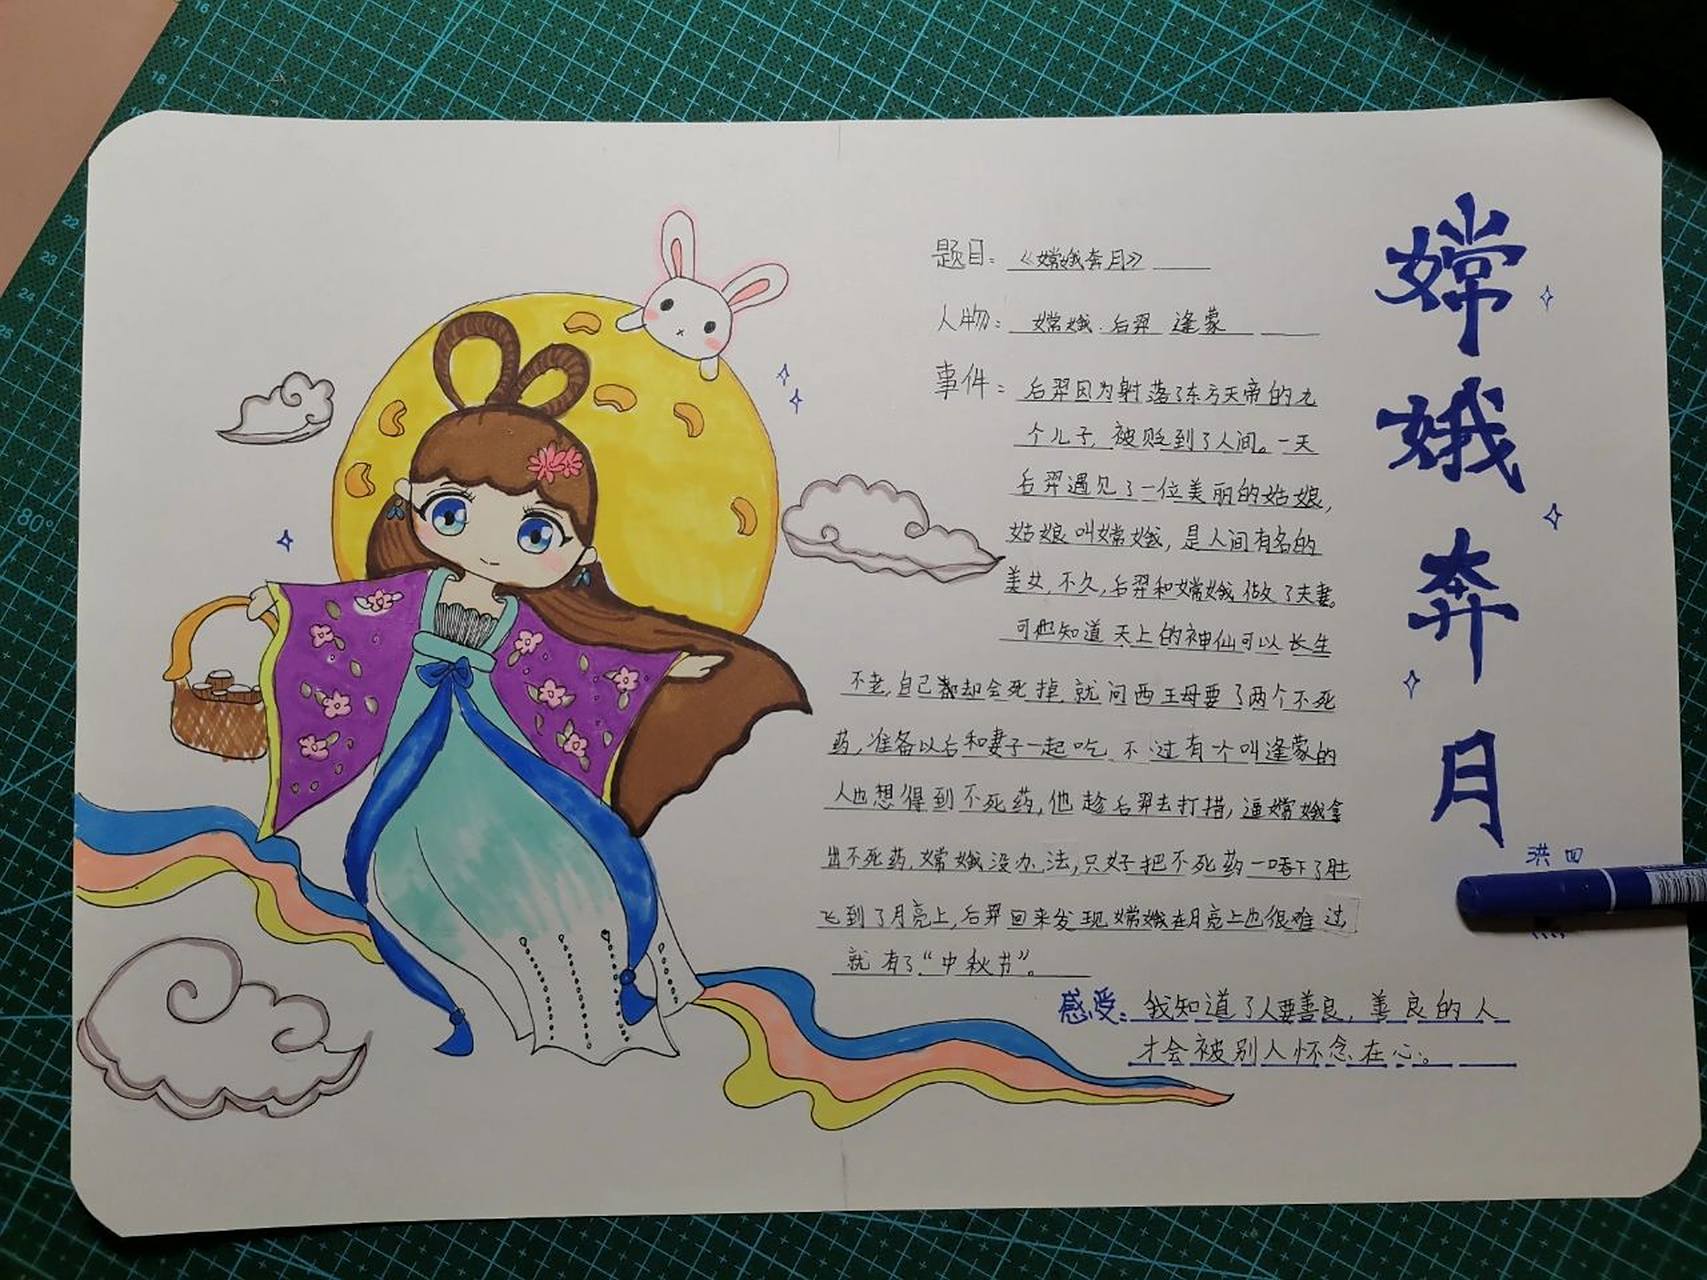 嫦娥奔月
题目：《嫦娥奔月》
人物：嫦娥.后羿 逢蒙
事件：后羿因为射落了东方天帝的九
个儿子，被贬到了人间。一天
后羿遇见了一位美丽的姑娘，
姑娘叫嫦娥，是人间有名的
美女，不久，后羿和嫦娥做了夫妻。
可他知道天上的神仙可以长生
不老，自己却会死掉，就问西王母要了两个不死
药，准备以后和妻子一起吃，不过有个叫逢蒙的
人也想得到不死药，他趁后羿去打措，逼嫦娥拿
出不死药，嫦娥没办法，只好把不死药一吞下了肚
飞到了月亮上，后羿回来发现嫦娥在月亮上也很难过
就有了“中秋节”。
感受：我知道了人要善良，善良的人
才会被别人怀念在心。
洪四
16
17
18
22
23
24
25
80°